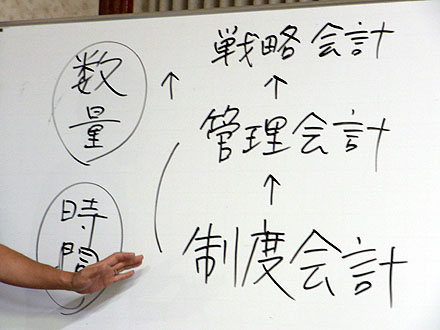 戦略会計
↑ ↑
数量
管理会計
↑
時間
制度会計